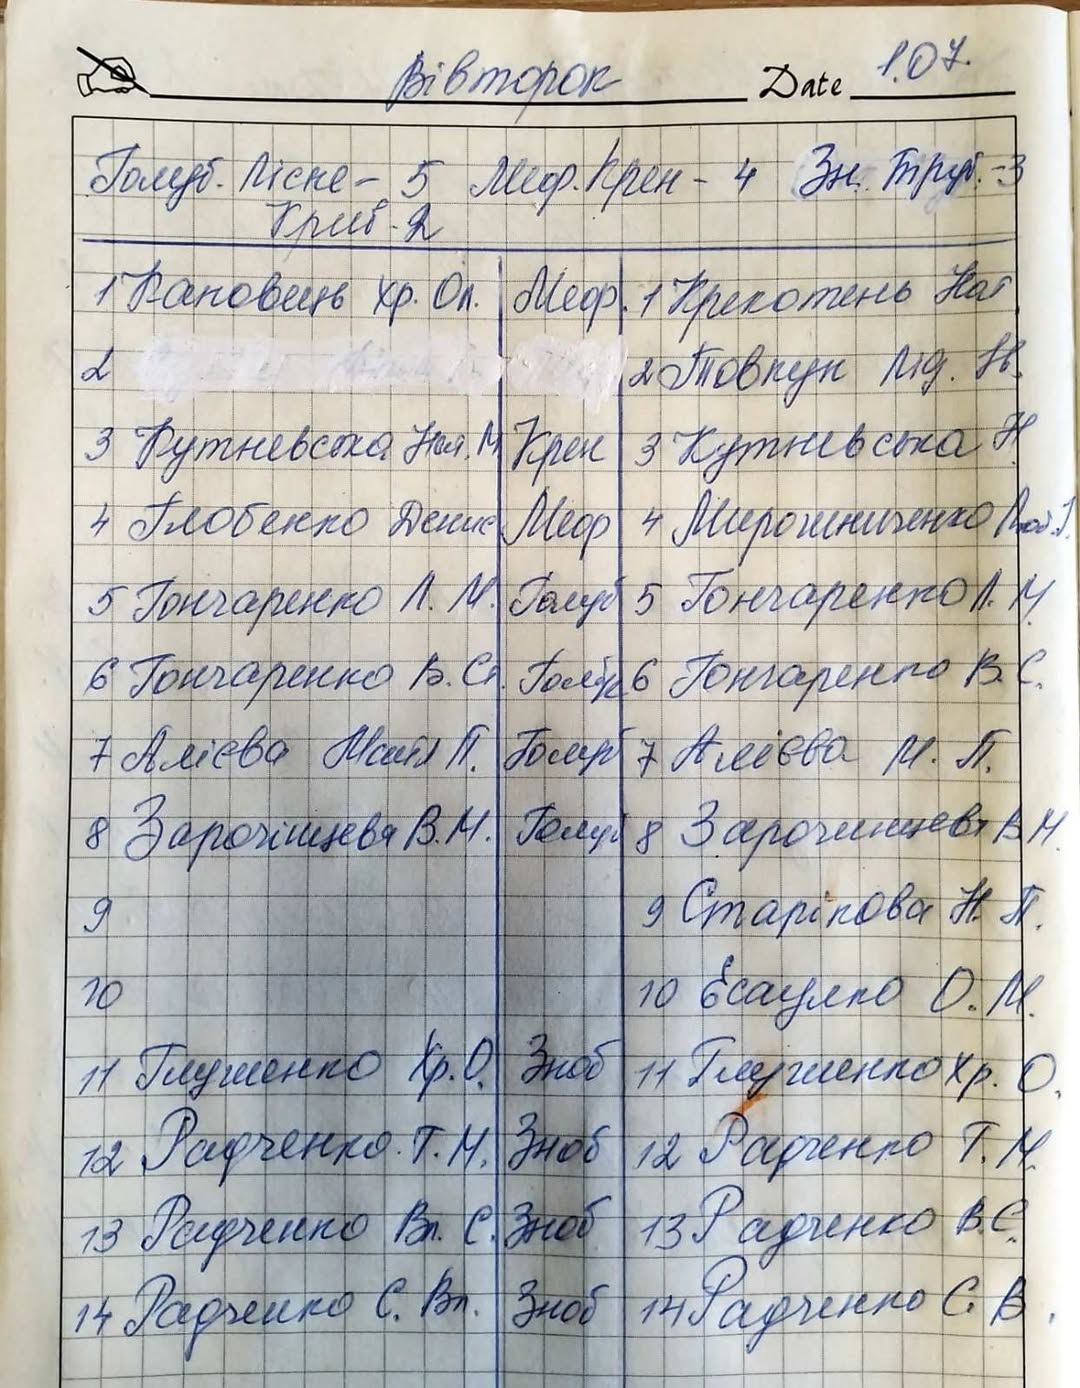 Вівторок Date 1.07.
Голуб. Ліске - 5 Меф. Крен - 4 Зн. Труб. - 3
Криб - 2
1 Кановець Хр. Ол. Меф. 1 Крекотень Нат
2 2 Товкун Лід. Ів.
3 Кутневська Нал. М Крен 3 Кутневська Н
4 Глобенко Денис Меф 4 Мирошниченко Люб. Г.
5 Гончаренко Л. М. Голуб 5 Гончаренко Л. М.
6 Гончаренко В. Ст. Голуб 6 Гончаренко В. С.
7 Алієва П. Голуб 7 Алієва М. П.
8 Зарочінцева В. М. Голуб 8 Зарочинцева В М.
9 9 Старікова Н. П.
10 10 Єсаулко О. М.
11 Глушенко Хр. О. Зноб 11 Глушенко Хр. О.
12 Радченко Т. М. Зноб 12 Радченко Т. М.
13 Радченко Вл. С. Зноб 13 Радченко В. С.
14 Радченко С. Вл. Зноб 14 Радченко С. В.